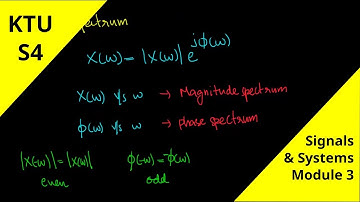 KTU
S4
spectrum
X(ω) = |X(ω)| e^{jϕ(ω)}
X(ω) v/s ω → Magnitude spectrum
ϕ(ω) v/s ω → phase spectrum
|X(-ω)| = |X(ω)| ϕ(-ω) = -ϕ(ω)
even odd
Signals
& Systems
Module 3